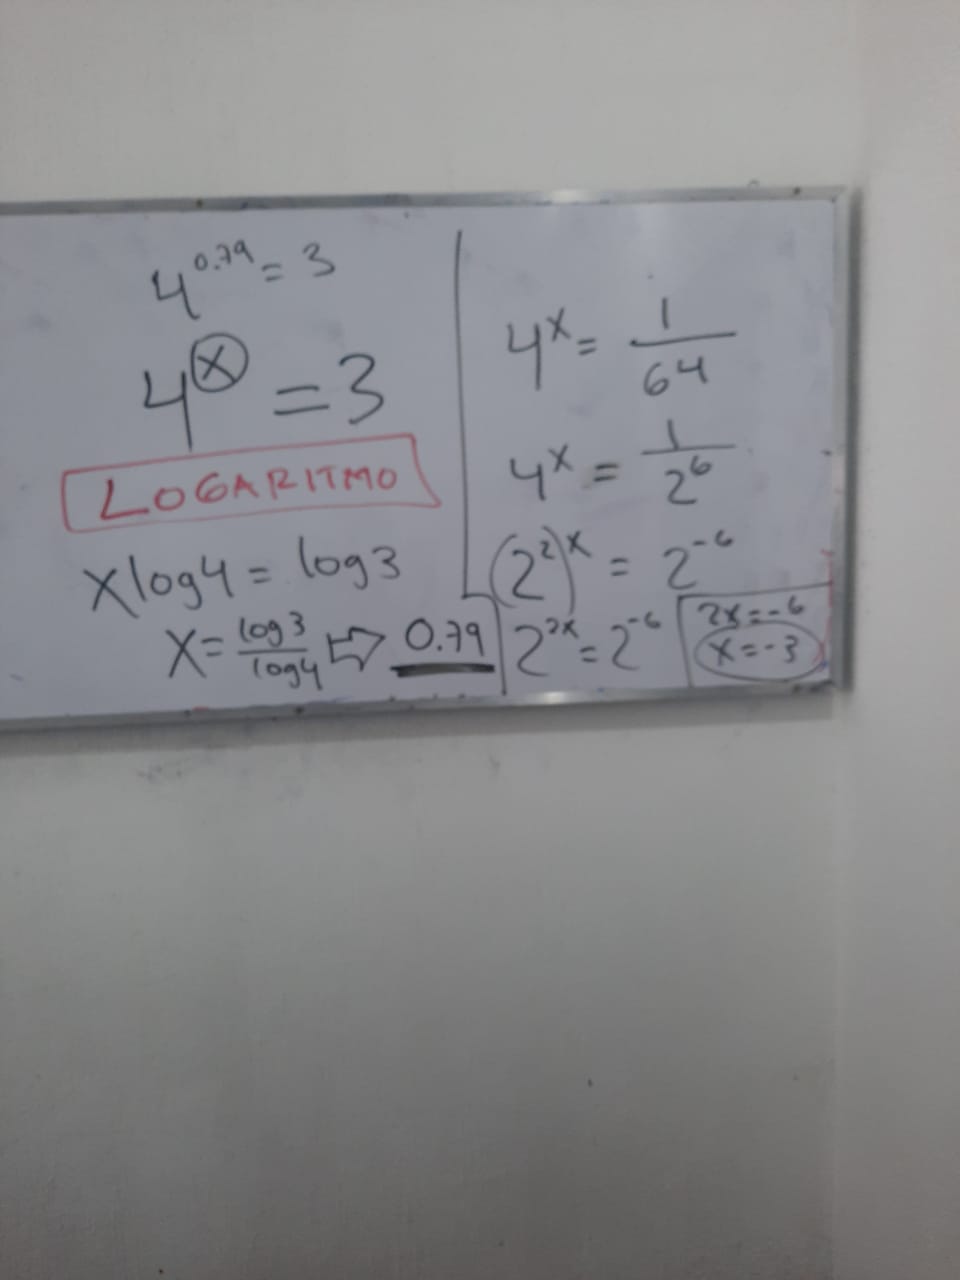 4^0.79 = 3
4^x = 3
LOGARITMO
xlog4 = log3
x = log3/log4 ⇨ 0.79
4^x = 1/64
4^x = 1/2^6
(2^2)^x = 2^-6
2^2x = 2^-6
2x = -6
x = -3